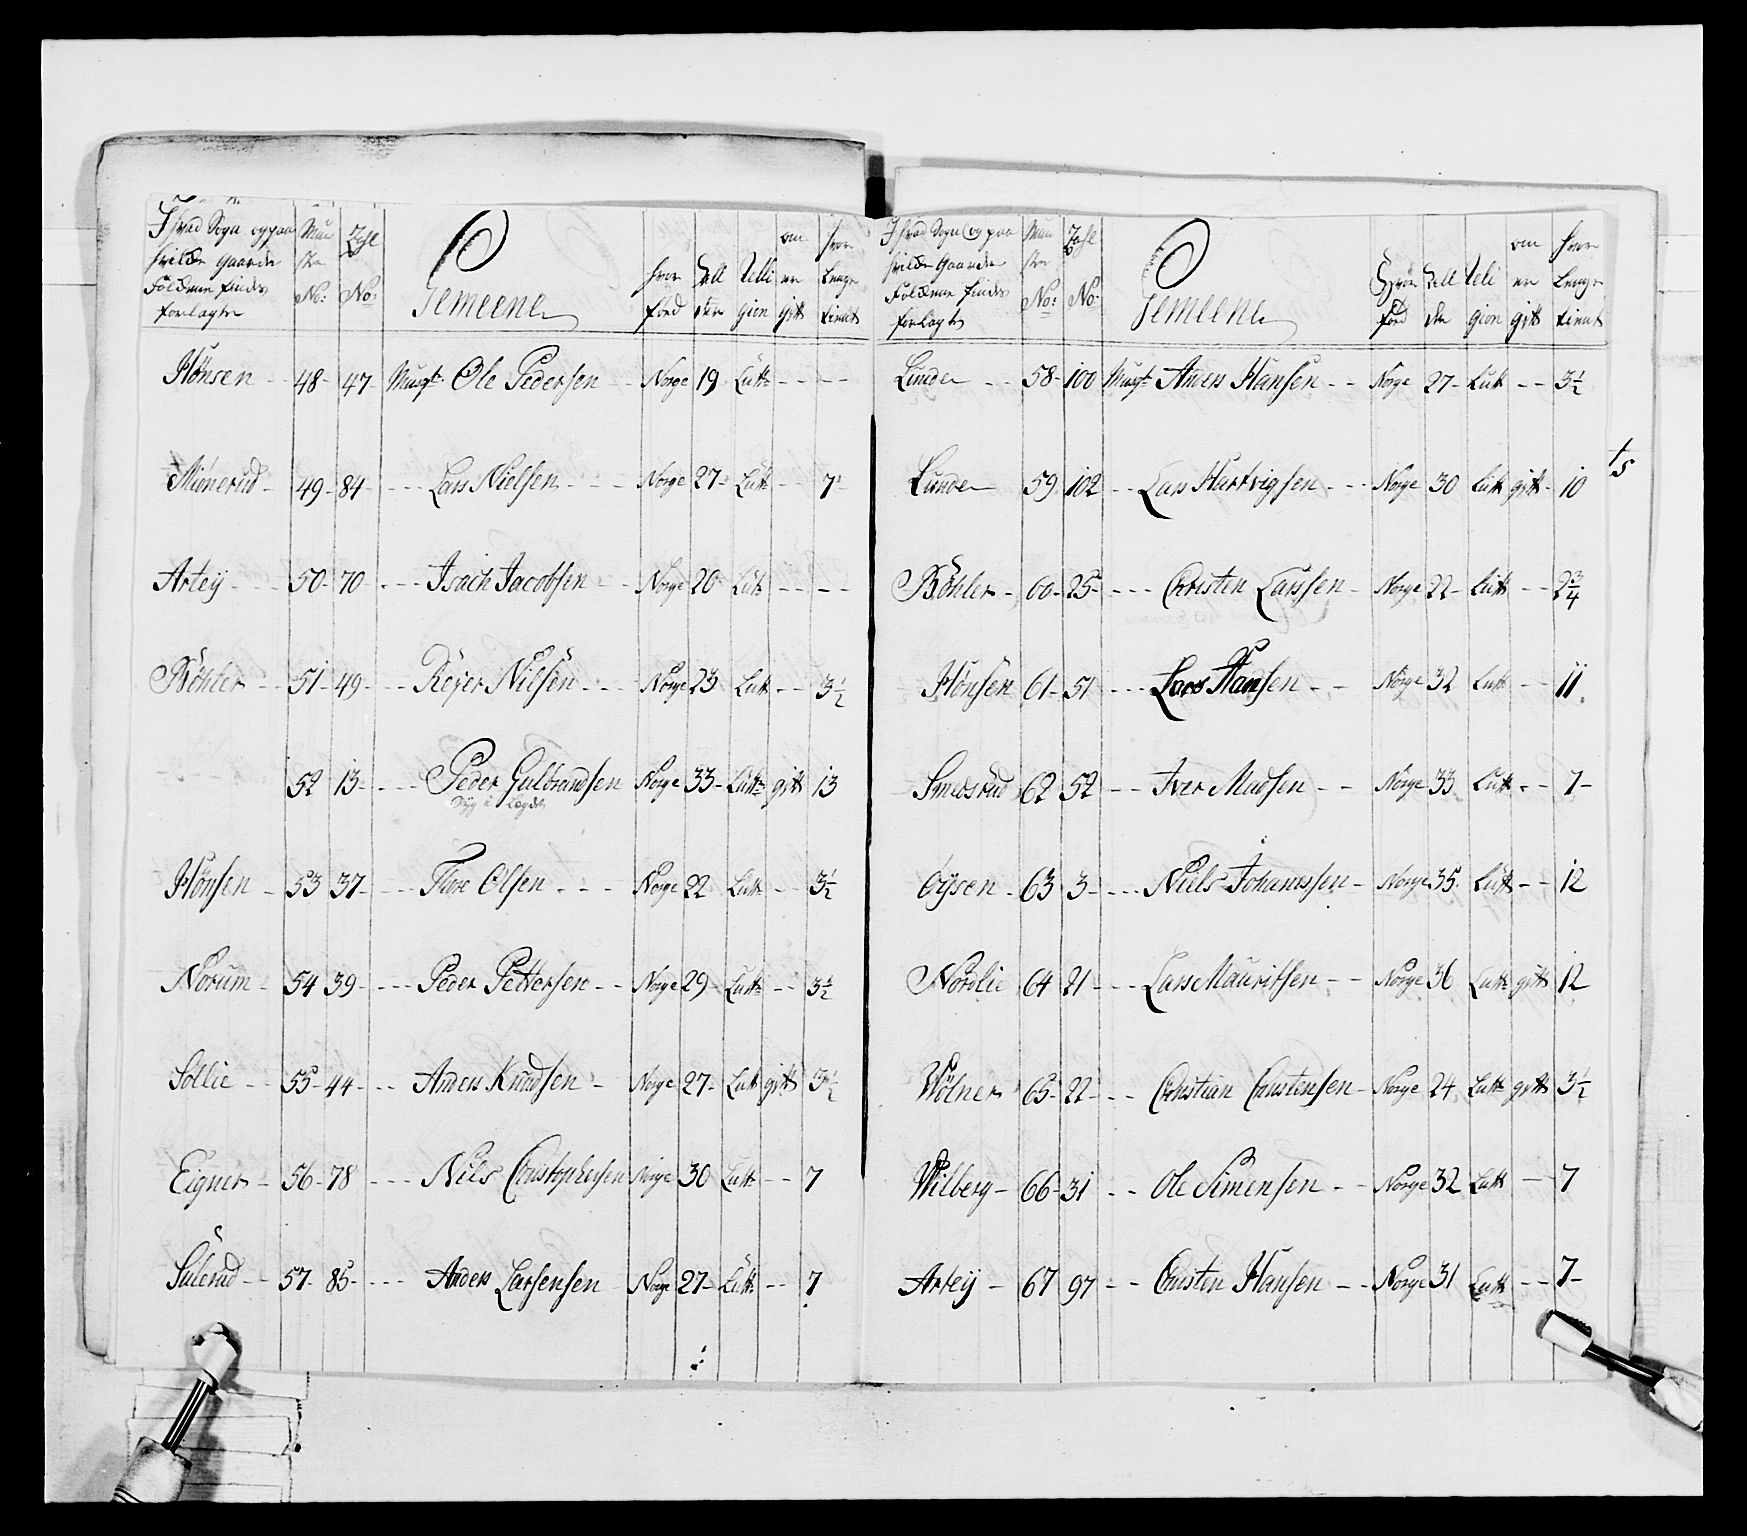 I hvad Sogn og paa
hvilke Gaarde
Folkene findes
forlagte
Mun
stre
No:
Tahl
No:
Gemeene
hvor
fød
Alde
ren
Reli
gion
om
er
gift
hvor
Lenge
tient
Hönsen -- 48- 47- Musqt. Ole Pedersen -- Norge 19 Luth ----
Miönerud - 49- 84- --- Lars Nielsen --- Norge 27- Luth -- 7
Arteÿ --- 50- 70- --- Isach Jacobsen -- Norge 20 Luth ----
Böhler -- 51- 49- --- Reÿer Nilsen --- Norge 23 Luth -- 3½
52 13- --- Peder Gulbrandsen Norge 33- Luth gift 13
Sÿg i Legdt
Hönsen - 53 37- --- Thore Olsen --- Norge 22 Luth -- 3½
Norum - 54 39- --- Peder Pettersen -- Norge 29 Luth -- 3½
Sollie -- 55- 44- -- Anders Knudsen - Norge 27- Luth gift 3½
Eigner - 56- 78 --- Niels Christophersen Norge 30 Luth -- 7
Sulerud -- 57- 85- --- Anders Larsensen - Norge 27- Luth -- 7
I hvad Sogn og paa
hvilke Gaarde
Folkene findes
forlagte
Mun
stre
No:
Tahl
No:
Gemeene
Hvor
fød
Alde
ren
Reli
gion
om
er
gift
hvor
Lenge
tient
Lunde -- 58- 100 Musqt Anders Hansen -- Norge 27- Luth -- 3½
Lunde 59 102 -- Lars Hartvigsen --- Norge 30 Luth gift - 10
Böhler - 60- 25- --- Christen Larssen - Norge 22- Luth -- 2¾
Hönsen 61- 51 --- Lars Hansen -- Norge 32 Luth -- 11
Smedsrud 62 52 -- Iver Madsen -- Norge 33 Luth -- 7-
Öÿsen - 63 3- --- Niels Johannssen - Norge 35 Luth -- 12
Nordlie 64 21- --- Lars Mauritssen -- Norge 36 Luth gift 12
Wölner 65- 22- -- Christian Christensen - Norge 24 Luth gift 3½
Wilberg - 66- 31 -- Ole Simensen -- Norge 32 Luth -- 7
Arteÿ - 67 97 -- Christen Hansen -- Norge 31 Luth -- 7-